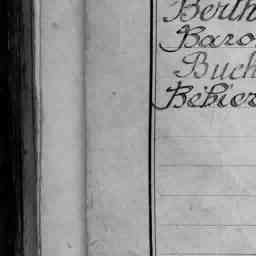 Berth
Baro
Buch
Bébier